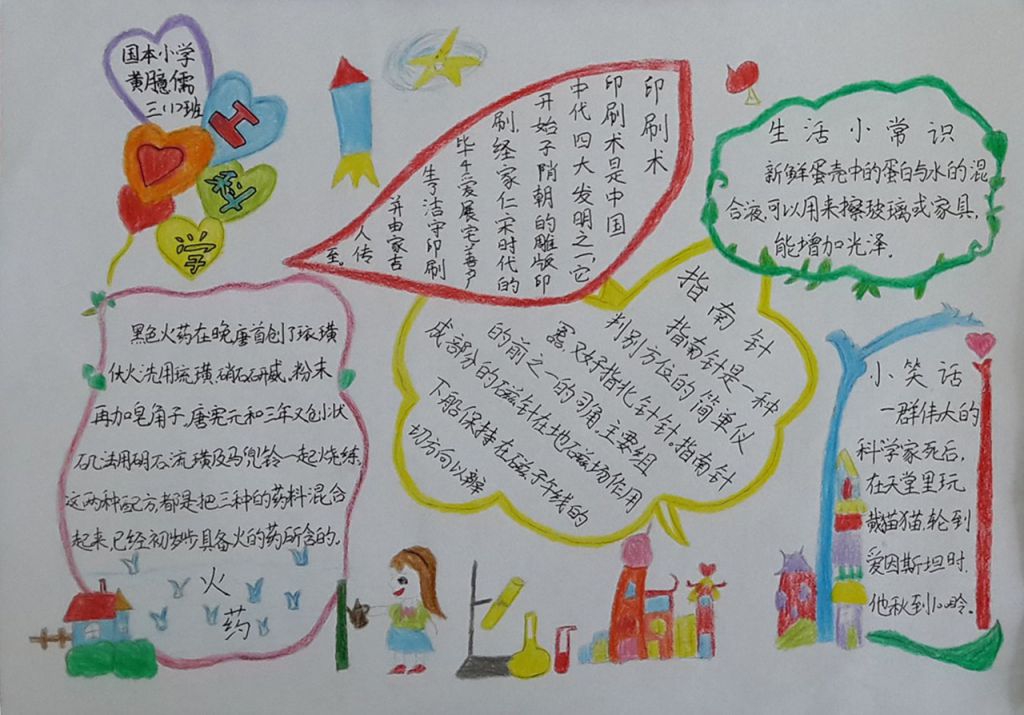 国本小学
黄臆儒
三(1)班
科
学
印刷术
印刷术是中国
中代四大发明之一,它
开始于隋朝的雕版印
刷,经家仁宋时代的
展完善产
生了活守印刷
并由家古
人传
至。
生活小常识
新鲜蛋壳中的蛋白与水的混
合液,可以用来擦玻璃或家具,
能增加光泽.
指南针
指南针是一种
判别方位的简单仪
又好指北针,指南针
的前之一的司角,主要组
成部分的磁针在地石磁场作用
下能保持在磁子午线的
切方向以
黑色火药在晚唐首创了琉璜
伏火
再加皂角子,唐宪元和三年又创小状
石流璜及马兜铃一起烧练,
这两种配方,都是把三种的药料混合
起来,已经初步具备火的药所含的。
火
药
小笑话
一群伟大的
科学家死后,
在天堂里玩
猫猫,轮到
爱因斯坦时,
他秋到100吟。